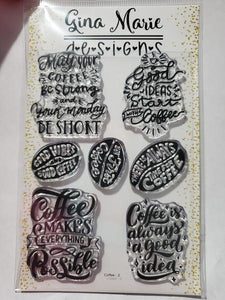 Gina Marie
DESIGNS
May your
COFFEE
Be Strong
and
your monday
BE SHORT
Good
IDEAS
Start
WITH Coffee
Coffee
MAKES
EVERYTHING
Possible
Coffee is
always
a good
idea
Coffee - 2